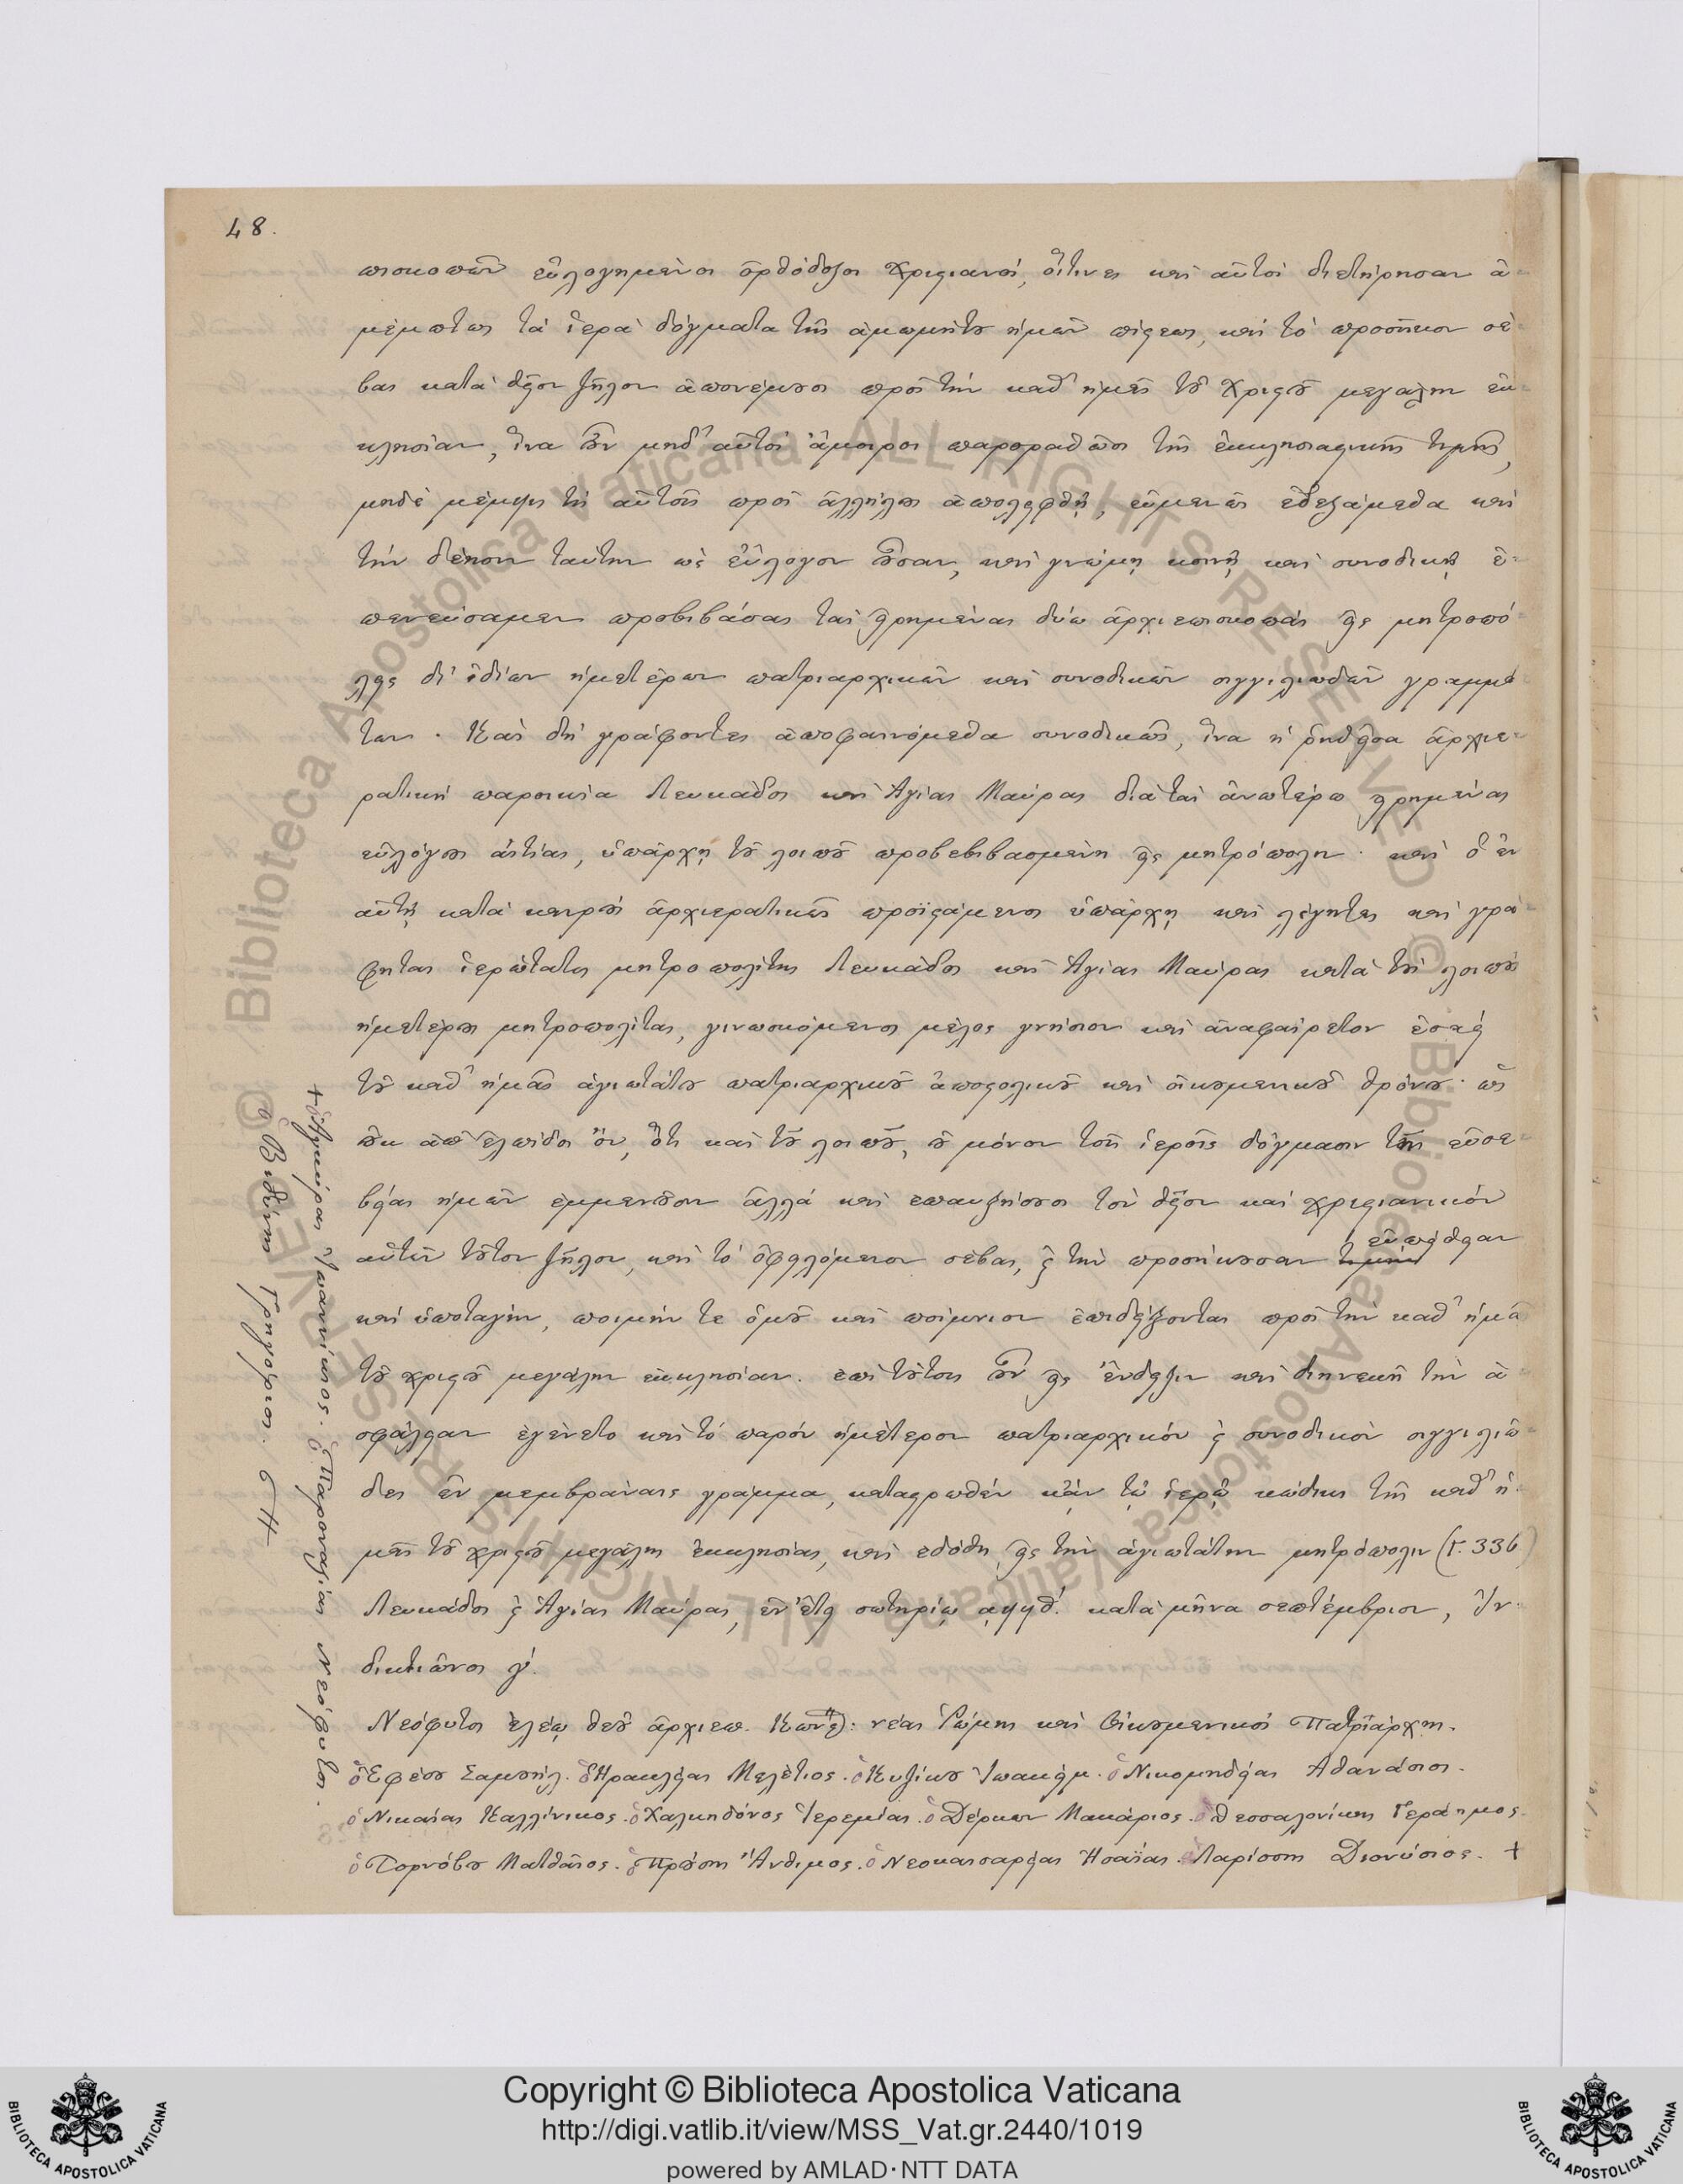 48.
πισκοπῶν εὐλογημένοι ὀρθόδοξοι χριστιανοί, οἵτινες καὶ αὐτοὶ διετήρησαν ἀ-
μέμπτως τὰ ἱερὰ δόγματα τῆς ἀμωμήτου ἡμῶν πίστεως, καὶ τὸ προσῆκον σέ-
βας κατὰ θεῖον ζῆλον ἀπονέμουσι πρὸς τὴν καθ' ἡμᾶς τοῦ Χριστοῦ μεγάλην ἐκ-
κλησίαν, ἵνα οὖν μηδ' αὐτοὶ ἄμοιροι παροραθῶσι τῆς ἐκκλησιαστικῆς τιμῆς,
μηδὲ μέμψις τις αὐτοῖς πρὸς ἀλλήλους ἀπολειφθῇ, εὐμενῶς ἐδεξάμεθα καὶ
τὴν δέησιν ταύτην ὡς εὔλογον οὖσαν, καὶ γνώμῃ κοινῇ καὶ συνοδικῇ ἐ-
πενεύσαμεν προβιβάσαι τὰς εἰρημένας δύω ἀρχιεπισκοπὰς εἰς μητροπό-
λεις δι' ἰδίων ἡμετέρων πατριαρχικῶν καὶ συνοδικῶν σιγγιλιωδῶν γραμμά-
των. Καὶ δὴ γράφοντες ἀποφαινόμεθα συνοδικῶς, ἵνα ἡ ῥηθεῖσα ἀρχιε-
ρατικὴ παροικία Λευκάδος καὶ Ἁγίας Μαύρας διὰ τὰς ἀνωτέρω εἰρημένας
εὐλόγους αἰτίας, ὑπάρχῃ τοῦ λοιποῦ προβεβιβασμένη εἰς μητρόπολιν· καὶ ὁ ἐν
αὐτῇ κατὰ καιροὺς ἀρχιερατικῶς προϊστάμενος ὑπάρχῃ καὶ λέγηται καὶ γρά-
φηται ἱερώτατος μητροπολίτης Λευκάδος καὶ Ἁγίας Μαύρας κατὰ τοὺς λοιποὺς
ἡμετέρους μητροπολίτας, γινωσκόμενος μέλος γνήσιον καὶ ἀναφαίρετον ἐσαεὶ
τοῦ καθ' ἡμᾶς ἁγιωτάτου πατριαρχικοῦ ἀποστολικοῦ καὶ οἰκουμενικοῦ θρόνου· ὡς
οὐκ ἀπ' ἐλπίδος ὄν, ὅτι καὶ τοῦ λοιποῦ, οὐ μόνον τοῖς ἱεροῖς δόγμασιν τῆς εὐσε-
βείας ἡμῶν ἐμμενοῦσιν ἀλλὰ καὶ ἐπαυξήσουσι τὸν θεῖον καὶ χριστιανικὸν
αὐτῶν τοῦτον ζῆλον, καὶ τὸ ὀφειλόμενον σέβας, καὶ τὴν προσήκουσαν τιμὴν εὐπείθειαν
καὶ ὑποταγήν, ποιμήν τε ὁμοῦ καὶ ποίμνιον ἐπιδείξονται πρὸς τὴν καθ' ἡμᾶ
τοῦ χριστοῦ μεγάλην ἐκκλησίαν. ἐπὶ τούτοις οὖν εἰς ἔνδειξιν καὶ διηνεκῆ τὴν ἀ-
σφάλειαν ἐγένετο καὶ τὸ παρὸν ἡμέτερον πατριαρχικὸν καὶ συνοδικὸν σιγγιλιῶ-
δες ἐν μεμβράναις γράμμα, καταστρωθὲν κἀν τῷ ἱερῷ κώδικι τῆς καθ' ἡ-
μᾶς τοῦ χριστοῦ μεγάλης ἐκκλησίας, καὶ ἐδόθη εἰς τὴν ἁγιωτάτην μητρόπολιν (Γ. 336)
Λευκάδος καὶ Ἁγίας Μαύρας, ἐν ἔτει σωτηρίῳ αψϟθ΄. κατὰ μῆνα σεπτέμβριον, Ἰν-
δικτιῶνος γ΄.
Νεόφυτος ἐλέῳ θεοῦ ἀρχιεπ. Κων/πόλ: νέας Ῥώμης καὶ Οἰκουμενικὸς Πατριάρχης.
ὁ Ἐφέσου Σαμουήλ. ὁ Ἡρακλείας Μελέτιος. ὁ Κυζίκου Ἰωακείμ. ὁ Νικομηδείας Ἀθανάσιος.
ὁ Νικαίας Καλλίνικος. ὁ Χαλκηδόνος Ἱερεμίας. ὁ Δέρκων Μακάριος. ὁ Θεσσαλονίκης Γεράσιμος.
ὁ Τορνόβου Ματθαῖος. ὁ Προύσης Ἄνθιμος. ὁ Νεοκαισαρείας Ἡσαΐας. ὁ Λαρίσσης Διονύσιος. +
+ ὁ Ἀγκύρας Ἰωαννίκιος. ὁ Παροναξίας Νεόφυτος.
ὁ Βιδύνης Γρηγόριος.
Copyright © Biblioteca Apostolica Vaticana
http://digi.vatlib.it/view/MSS_Vat.gr.2440/1019
powered by AMLAD·NTT DATA
BIBLIOTECA APOSTOLICA VATICANA
BIBLIOTECA APOSTOLICA VATICANA
© Biblioteca Apostolica Vaticana ALL RIGHTS RESERVED
© Biblioteca Apostolica Vaticana ALL RIGHTS RESERVED